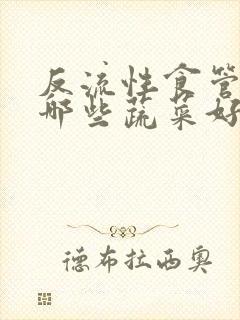 反流性食管
哪些蔬菜好
德布拉西奥